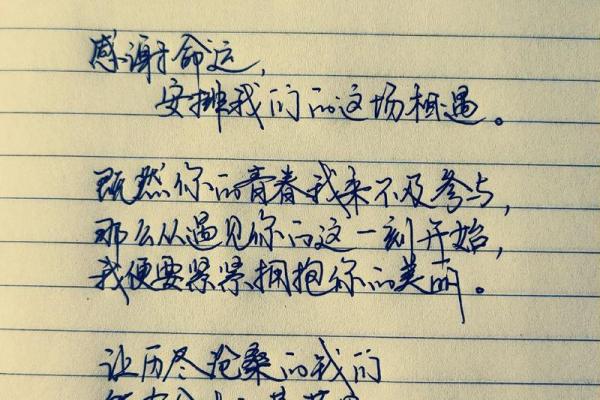 感谢命运，
安排我们的这场相遇。
既然你的青春我来不及参与，
那么从遇见你的这一刻开始，
我便要紧紧拥抱你的美丽。
让历尽沧桑的我们